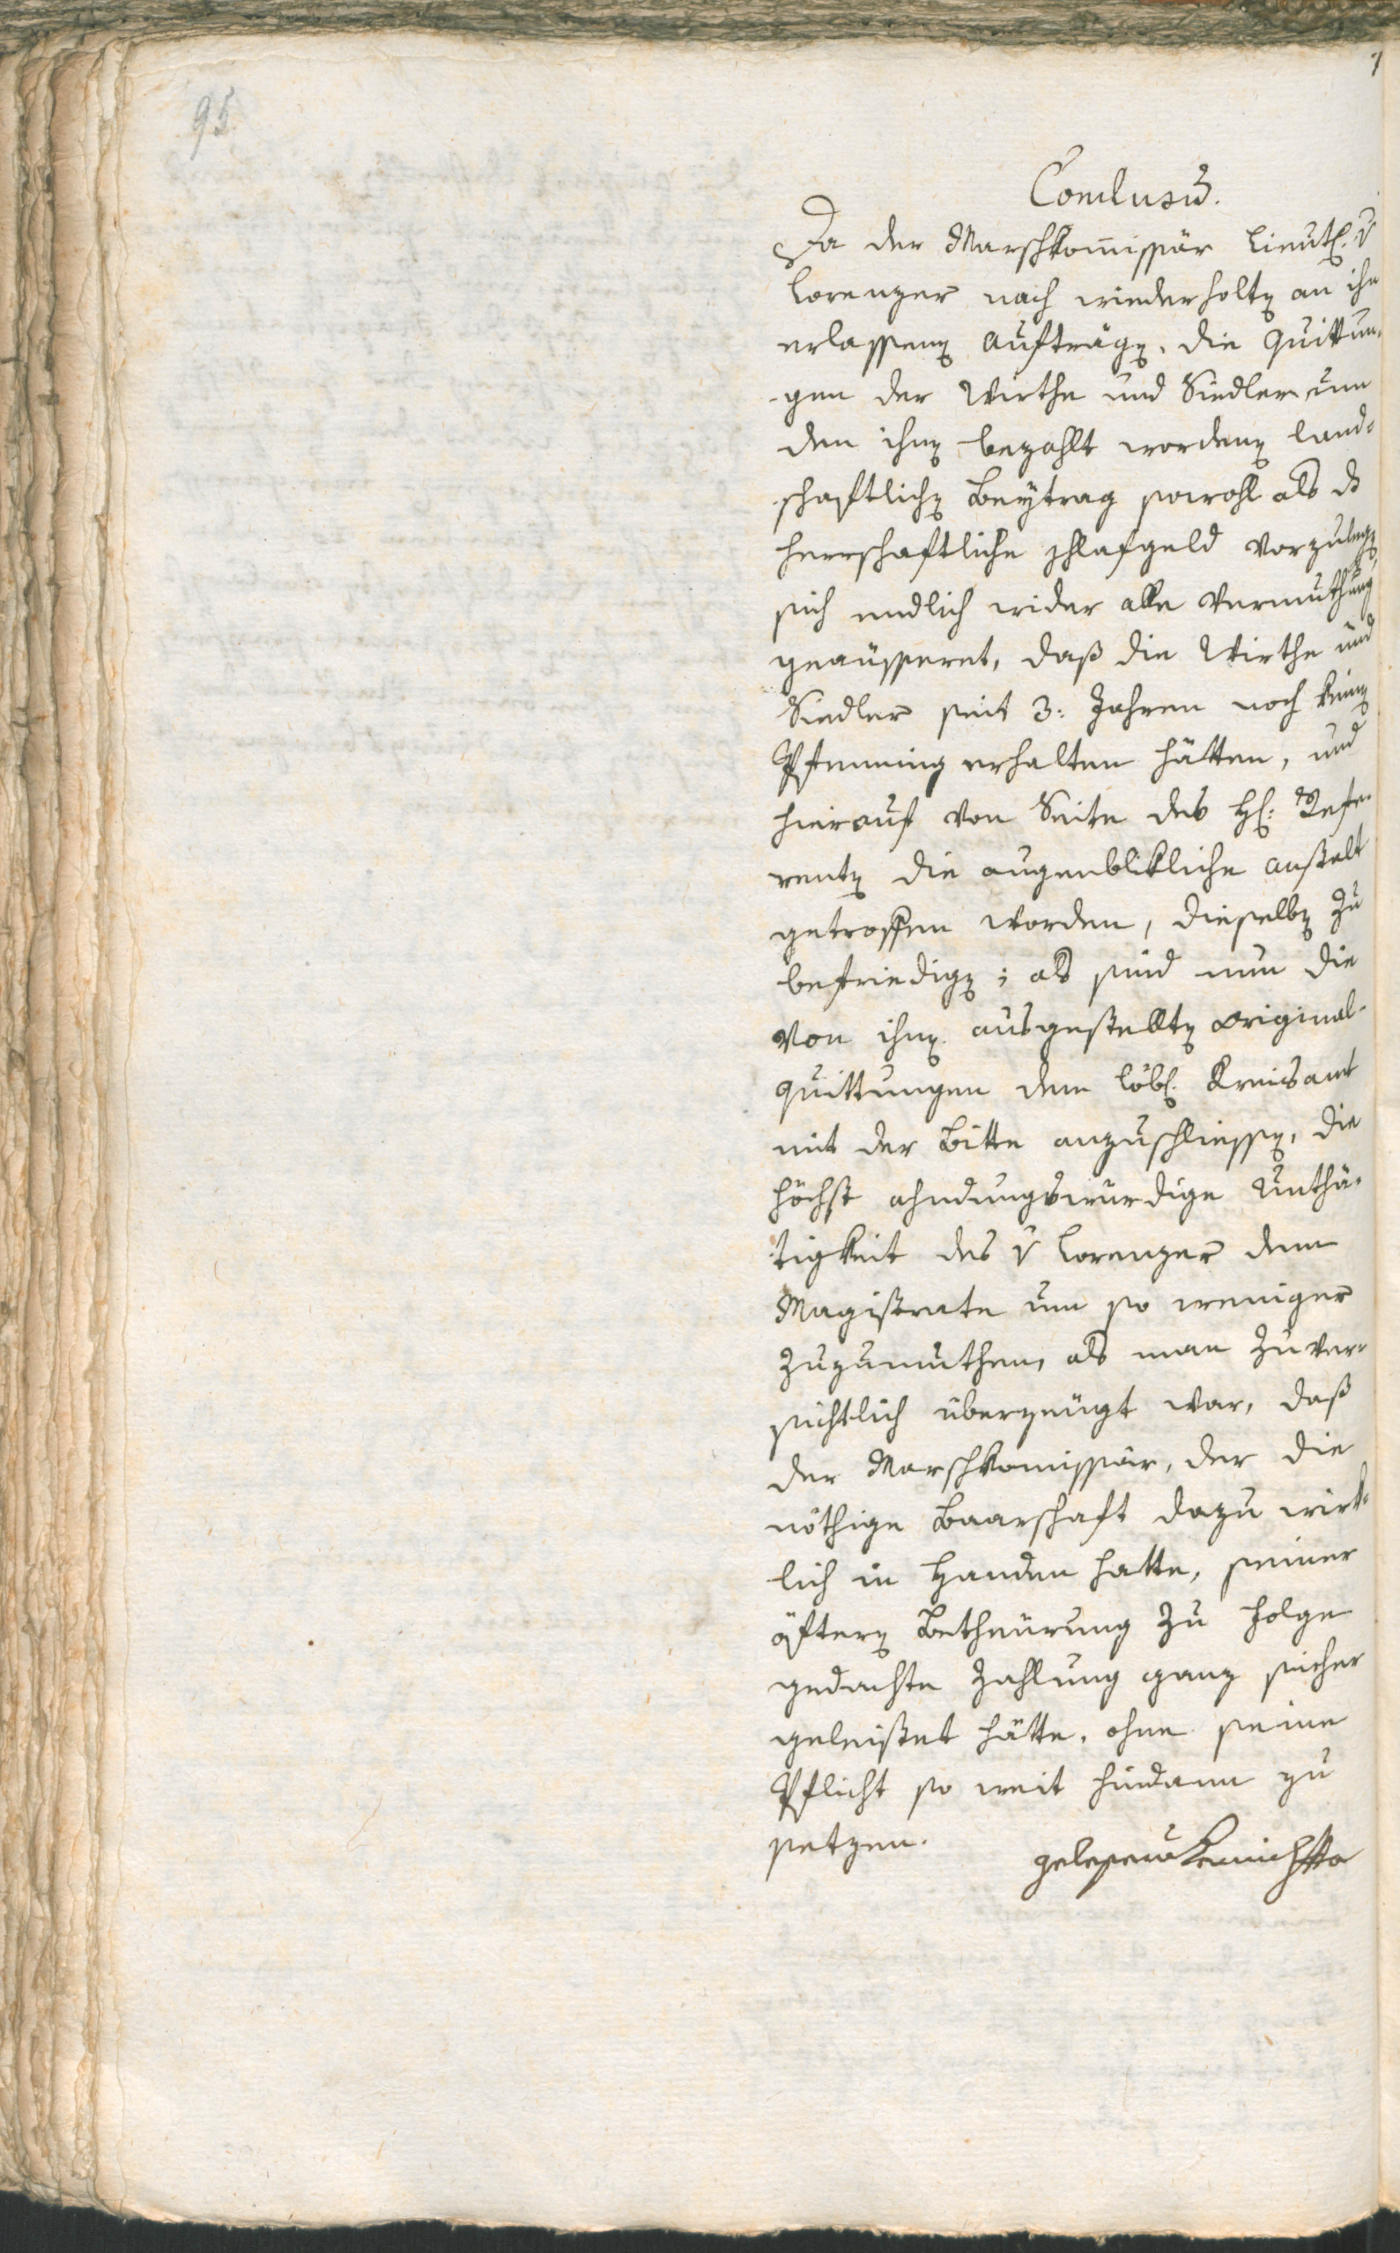 95
Conclusum.
Da der Marschkommissär Lieut. v
Lorenzer nach wiederholten an ihn
erlassenen Aufträgen, die Quittun-
gen der Wirthe und Siedler um
den ihnen bezahlt wordenen land-
schaftlichen Beytrag sowohl als das
herrschaftliche Schlafgeld vorzulegen
sich endlich wider alle Vermuthung
geäusseret, daß die Wirthe und
Siedler seit 3: Jahren noch keinen
Pfenning erhalten hätten, und
hierauf von Seite des H: Refe-
renten die augenblikliche Anstalt
getroffen worden, dieselben zu
befriedigen; als sind nun die
von ihnen ausgestellten Original-
quittungen dem löbl. Kreisamt
mit der Bitte anzuschliessen, die
höchst ahndungswürdige Unthä-
tigkeit des v Lorenzer dem
Magistrate um so weniger
zuzumuthen, als man zuver-
sichtlich überzeugt war, daß
der Marschkomissär, der die
nöthige Baarschaft dazu wirk-
lich in Handen hatte, seiner
öfteren Betheurung zu Folge
gedachte Zahlung ganz sicher
geleistet hätte, ohne seine
Pflicht so weit hindann zu
setzen.
gelesen